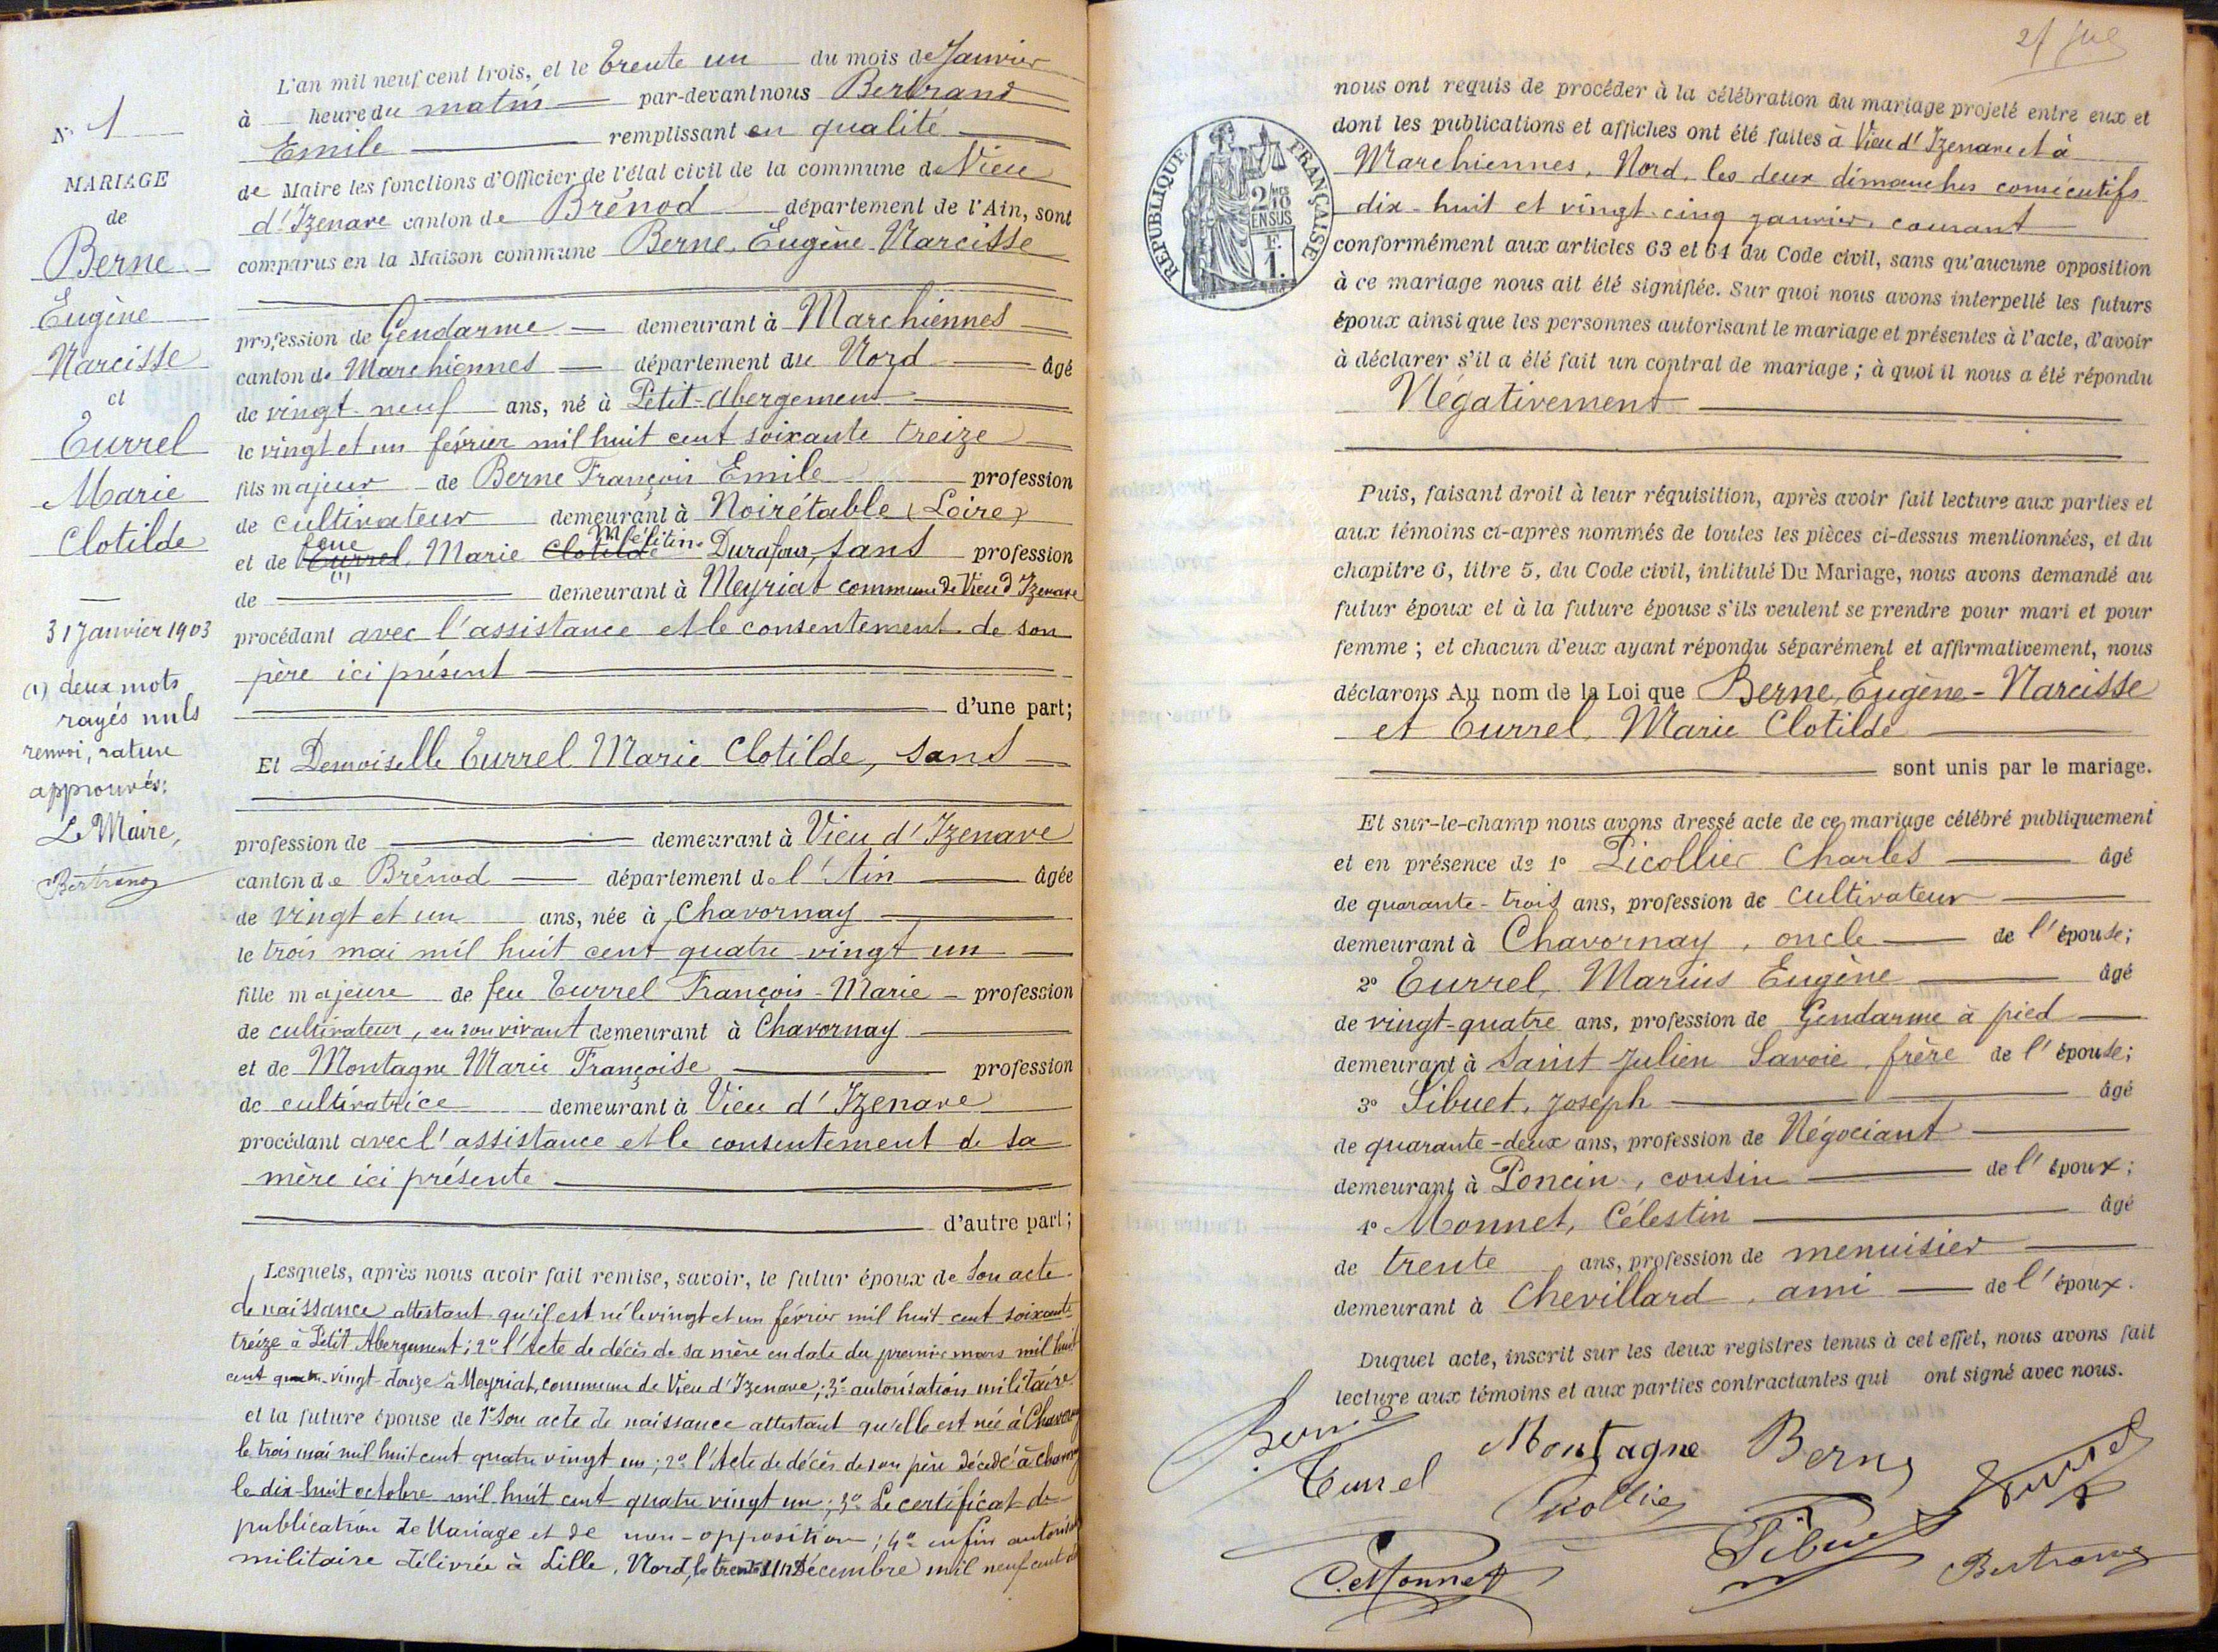 L'an mil neuf cent trois, et le trente un du mois de Janvier
à heure du matin par-devant nous Bertrand
Emile remplissant en qualité
de Maire les fonctions d'Officier de l'état civil de la commune de Vieu
d'Izenave canton de Brénod département de l'Ain, sont
comparus en la Maison commune Berne, Eugène Narcisse
profession de Gendarme demeurant à Marchiennes
canton de Marchiennes département du Nord âgé
de vingt-neuf ans, né à Petit-Abergement
le vingt et un février mil huit cent soixante treize
fils majeur de Berne François Emile profession
de cultivateur demeurant à Noirétable (Loire)
et de feue Turrel, Marie Clotilde Mélitine Durafour, sans profession
(1)
de demeurant à Meyriat commune de Vieu d'Izenave
procédant avec l'assistance et le consentement de son
père ici présent
d'une part;
Et Demoiselle Turrel Marie Clotilde, sans
profession de demeurant à Vieu d'Izenave
canton de Brénod département de l'Ain âgée
de vingt et un ans, née à Chavornay
le trois mai mil huit cent quatre vingt un
fille majeure de feu Turrel François-Marie profession
de cultivateur, en son vivant demeurant à Chavornay
et de Montagne Marie Françoise profession
de cultivatrice demeurant à Vieu d'Izenave
procédant avec l'assistance et le consentement de sa
mère ici présente
d'autre part;
Lesquels, après nous avoir fait remise, savoir, le futur époux de son acte
de naissance attestant qu'il est né le vingt et un février mil huit cent soixante
treize à Petit Abergement; 2° l'Acte de décès de sa mère en date du premier mars mil huit
cent quatre-vingt-douze à Meyriat, commune de Vieu d'Izenave; 3° autorisation militaire
et la future épouse de 1° son acte de naissance attestant qu'elle est née à Chavornay
le trois mai mil huit cent quatre vingt un; 2° l'Acte de décès de son père décédé à
le dix-huit octobre mil huit cent quatre vingt un; 3° Le certificat de
publication de Mariage et de non-opposition; 4° enfin
militaire délivrée à Lille, Nord, le trente un Décembre mil neuf cent
N° 1
MARIAGE
de
Berne
Eugène
Narcisse
et
Turrel
Marie
Clotilde
31 Janvier 1903
(1) deux mots
rayés nuls
renvoi, rature
approuvés;
Le Maire,
Bertrand
nous ont requis de procéder à la célébration du mariage projeté entre eux et
dont les publications et affiches ont été faites à Vieu d'Izenave et à
Marchiennes, Nord, les deux dimanches consécutifs
dix-huit et vingt-cinq janvier, courant
conformément aux articles 63 et 64 du Code civil, sans qu'aucune opposition
à ce mariage nous ait été signifiée. Sur quoi nous avons interpellé les futurs
époux ainsi que les personnes autorisant le mariage et présentes à l'acte, d'avoir
à déclarer s'il a été fait un contrat de mariage; à quoi il nous a été répondu
Négativement
RÉPUBLIQUE FRANÇAISE
2/10
EN SUS
F.
1.
Puis, faisant droit à leur réquisition, après avoir fait lecture aux parties et
aux témoins ci-après nommés de toutes les pièces ci-dessus mentionnées, et du
chapitre 6, titre 5, du Code civil, intitulé Du Mariage, nous avons demandé au
futur époux et à la future épouse s'ils veulent se prendre pour mari et pour
femme; et chacun d'eux ayant répondu séparément et affirmativement, nous
déclarons Au nom de la Loi que Berne, Eugène-Narcisse
et Turrel, Marie Clotilde
sont unis par le mariage.
Et sur-le-champ nous avons dressé acte de ce mariage célébré publiquement
et en présence de 1° Picollier Charles âgé
de quarante-trois ans, profession de cultivateur
demeurant à Chavornay, oncle de l'épouse;
2° Turrel, Marius Eugène âgé
de vingt-quatre ans, profession de Gendarme à pied
demeurant à Saint Julien Savoie, frère de l'épouse;
3° Sibuet, Joseph âgé
de quarante-deux ans, profession de Négociant
demeurant à Poncin, cousin de l'époux;
4° Monnet, Célestin âgé
de trente ans, profession de menuisier
demeurant à Chevillard, ami de l'époux.
Duquel acte, inscrit sur les deux registres tenus à cet effet, nous avons fait
lecture aux témoins et aux parties contractantes qui ont signé avec nous.
Berne Montagne Berne
Turrel Picollier Turrel
C. Monnet Sibuet Bertrand